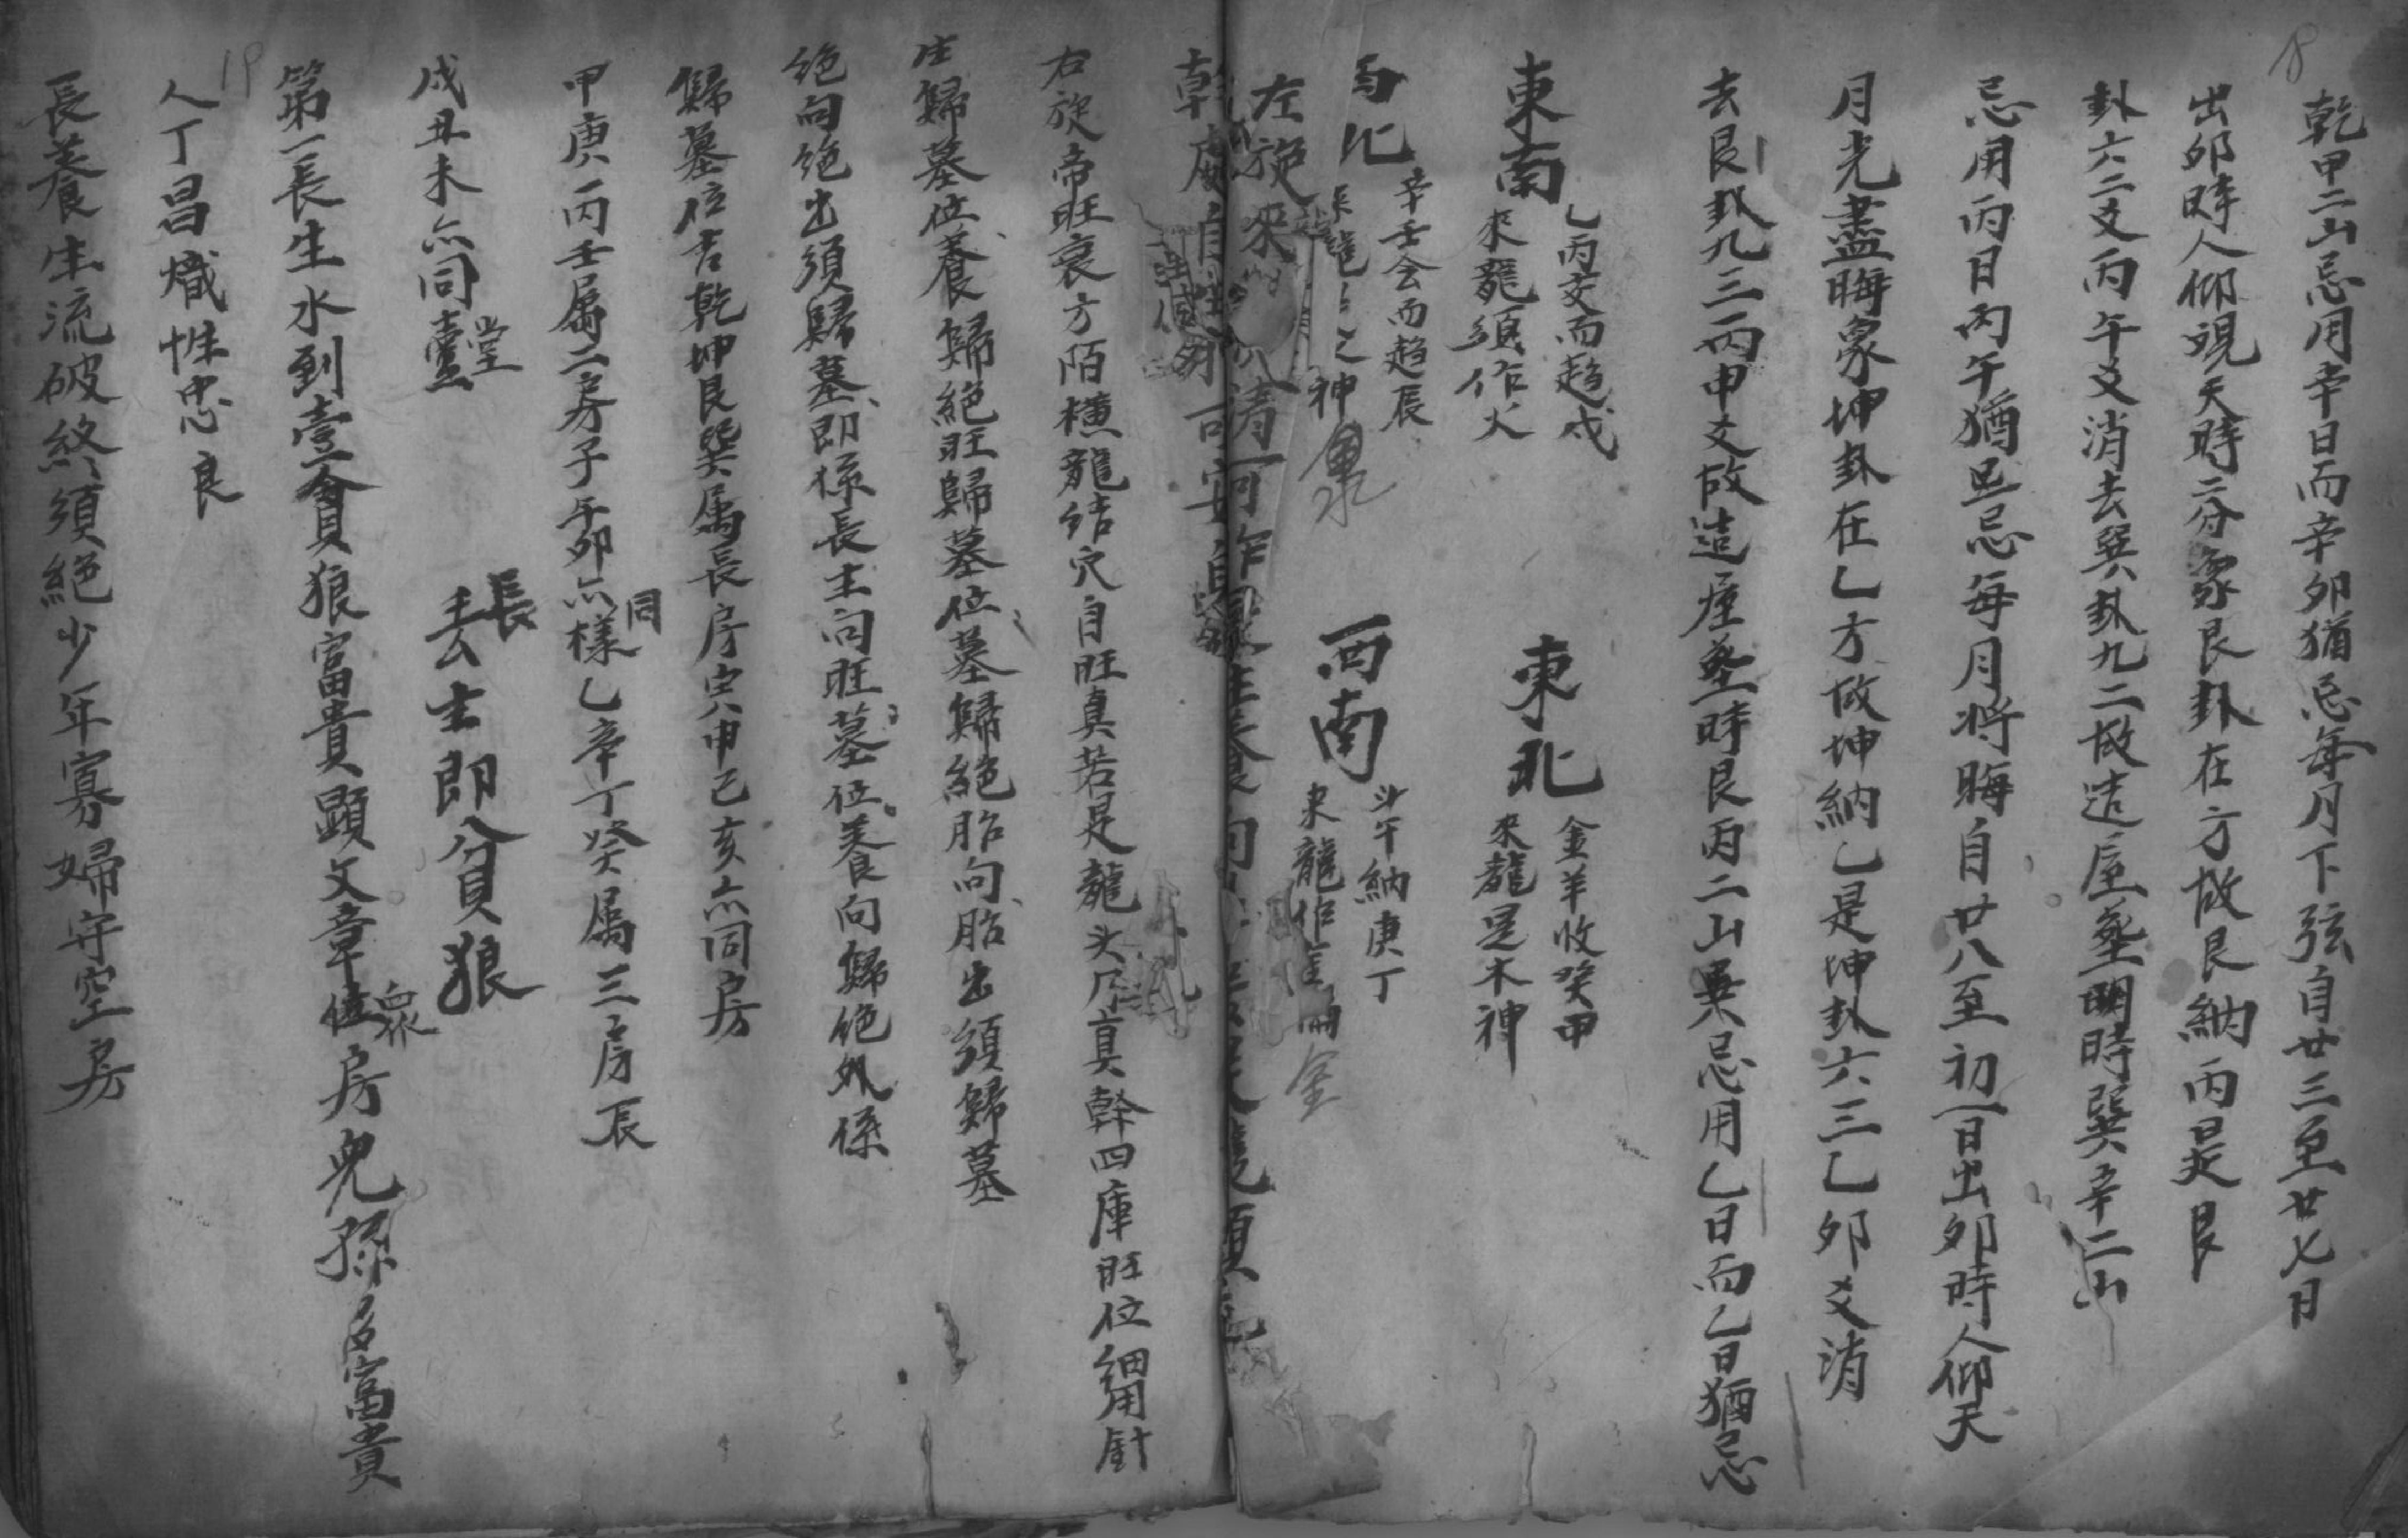 8
乾甲二山忌用辛日而辛卯猶忌每月下弦自廿三至廿七日
出卯時人仰覌天時二分象艮卦在方故艮納丙是艮
卦六二爻丙午爻消去巽卦九二故造屋塟明時巽辛二山
忌用丙日丙午猶忌每月将晦自廿八至初一日出卯時人仰天
月光盡晦象坤卦在乙方故坤納乙是坤卦六三乙卯爻消
去艮卦九三丙申爻故造座塟時艮丙二山異忌用乙日而乙日猶忌
東南
乙丙交而趋戍
來龍須作火
東北
金羊收癸甲
來龍是木神
西北
辛壬会而趋辰
來龍之神
西南
斗牛納庚丁
來龍作
金
左旋來
右旋帝旺衰方陌横龍结穴自旺真若是龍头乃真幹四庫旺位細用針
生歸墓位養歸絕旺歸墓位墓歸絕胎向胎出須歸墓
绝向绝出須歸墓即係長生向旺墓位養向歸绝外係
歸墓位吉乾坤艮巽属長房寅申巳亥亦同房
甲庚丙壬属二房子午卯亦同樣乙辛丁癸属三房辰
戍丑未亦同
堂
長
去生即貪狼
第一長生水到堂貪狼富貴顕文章位房皃孫多富貴
人丁昌熾性忠良
19
長养生流破終須絕少年寡婦守空房